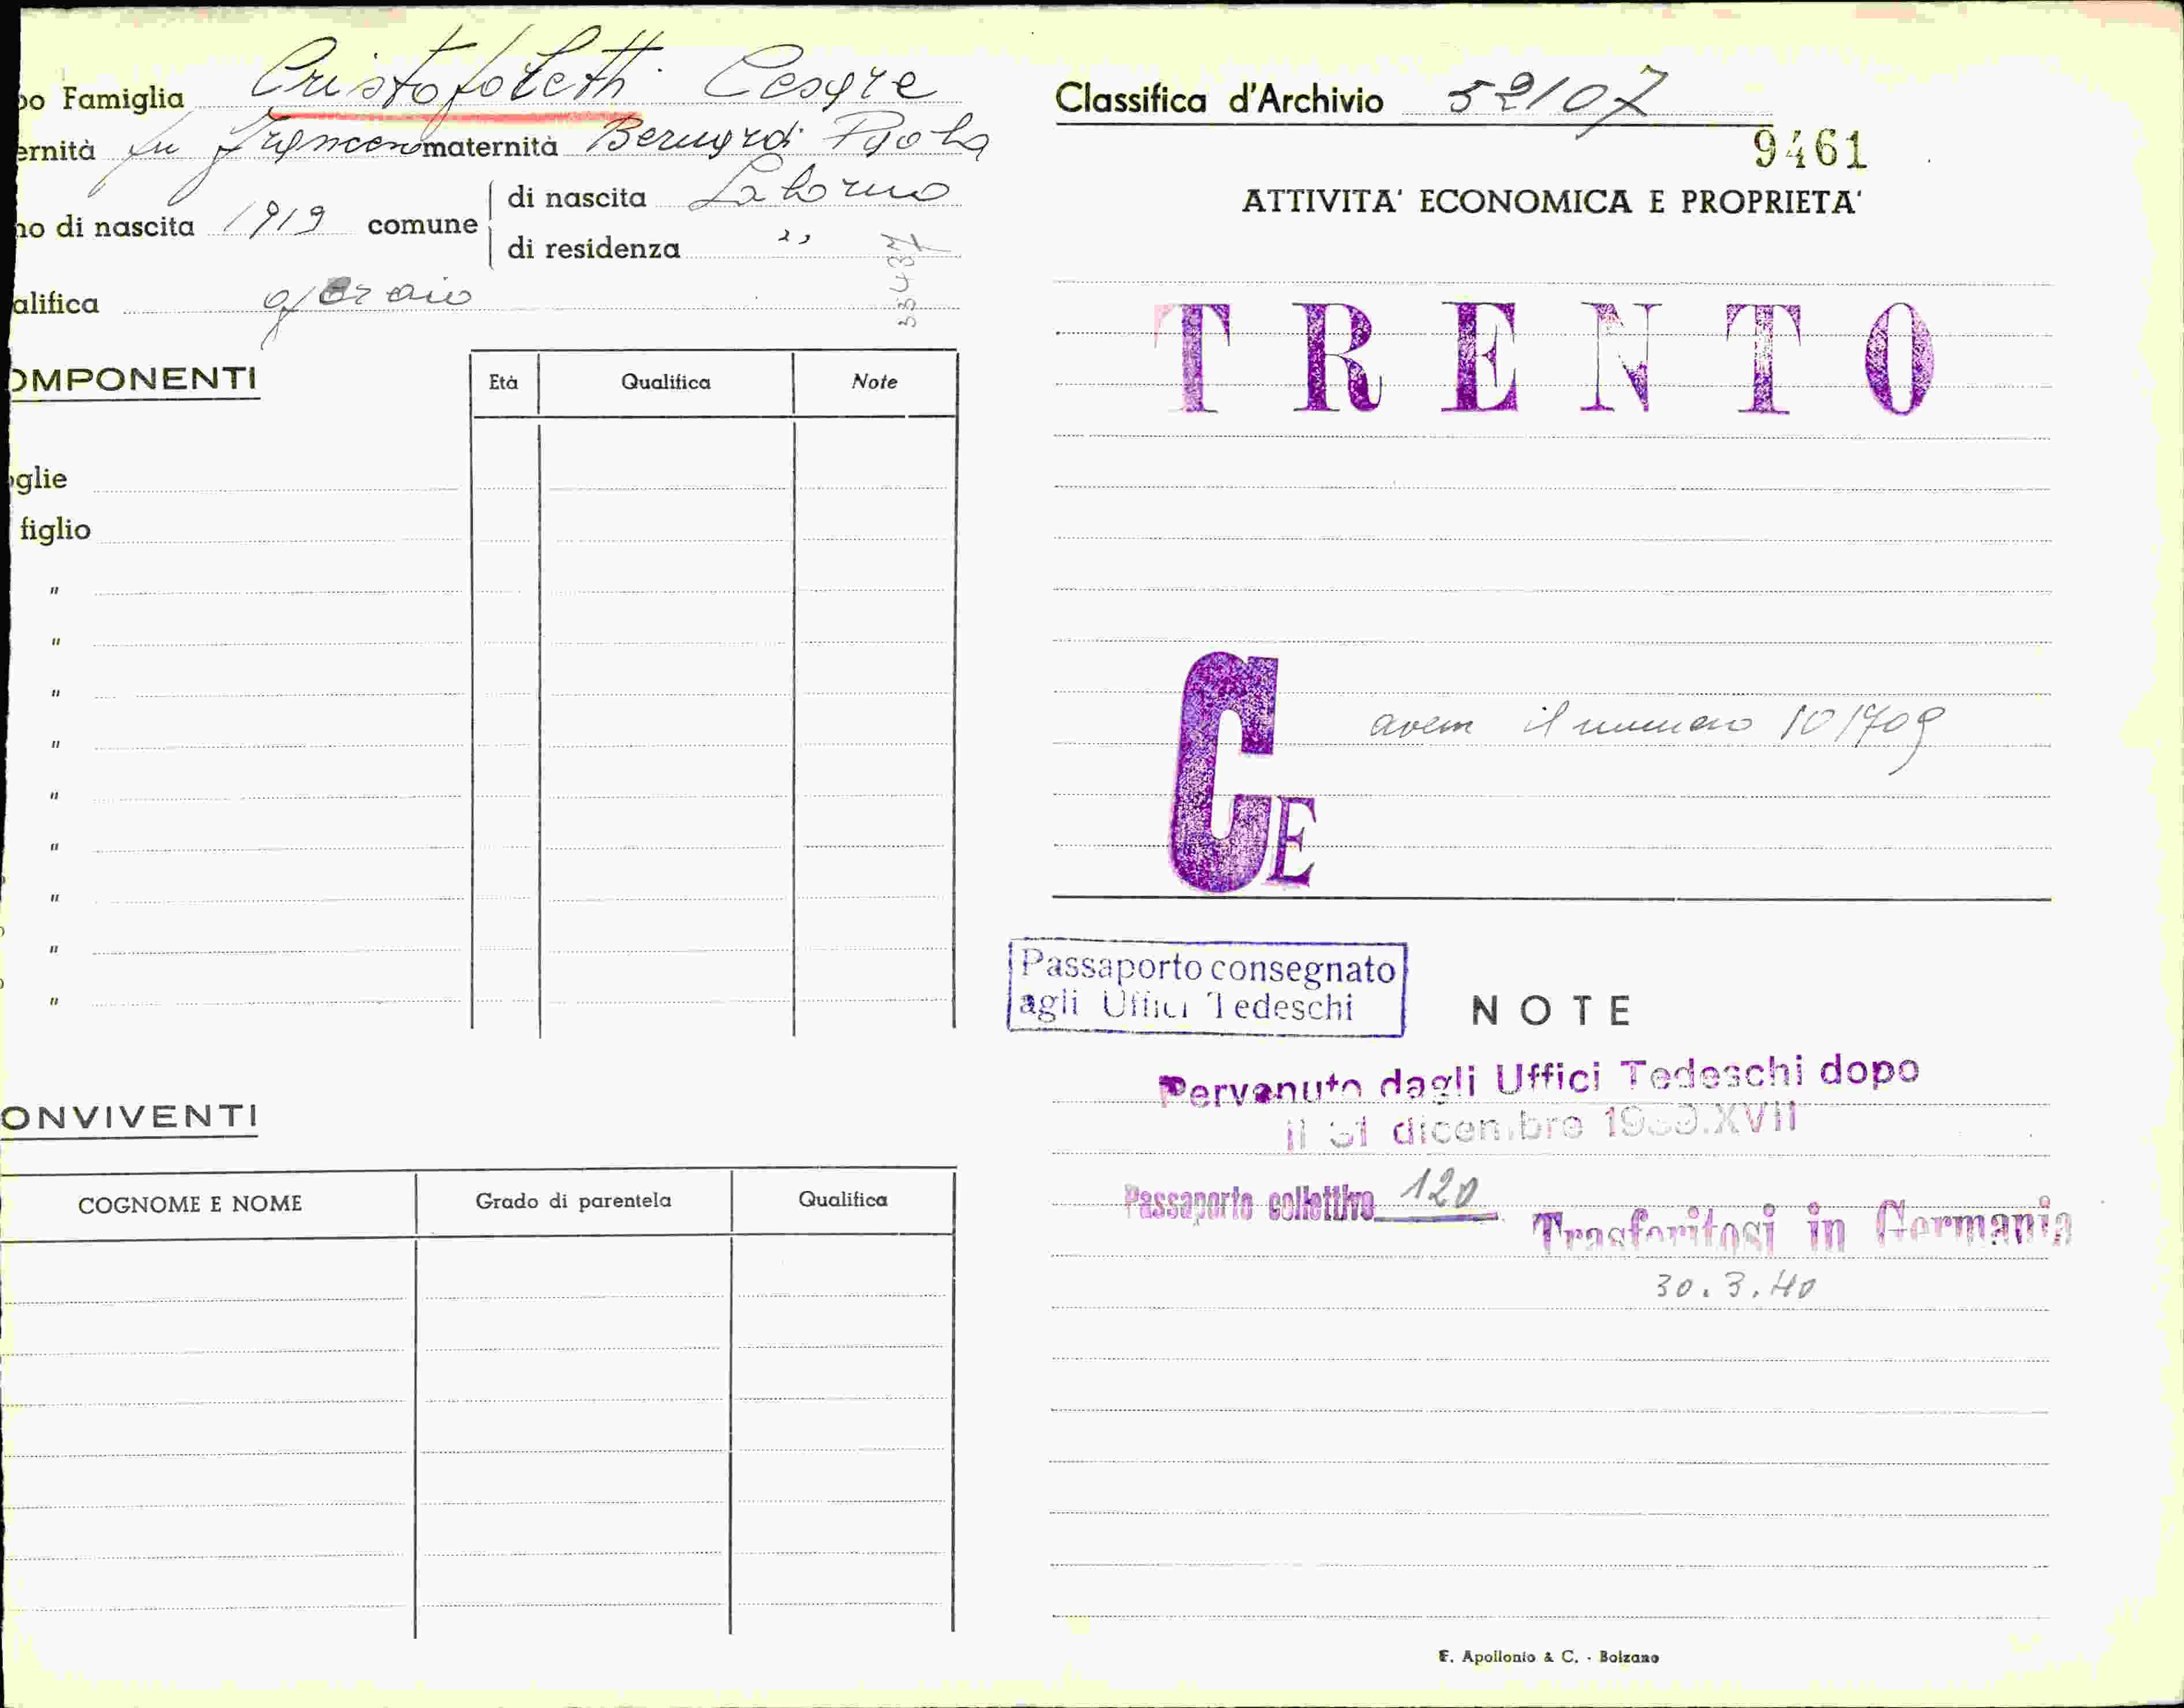 po Famiglia Cristofoletti Cesare
ernità fu Francesco maternità Bernardi Paola
no di nascita 1919 comune di nascita Salorno
di residenza "
alifica operaio
33437
OMPONENTI
Età Qualifica Note
oglie
figlio
"
"
"
"
"
"
"
"
"
ONVIVENTI
COGNOME E NOME Grado di parentela Qualifica
Classifica d'Archivio 52107
9461
ATTIVITA' ECONOMICA E PROPRIETA'
TRENTO
CE
aveva il numero 101709
Passaporto consegnato
agli Uffici Tedeschi
NOTE
Pervenuto dagli Uffici Tedeschi dopo
il 31 dicembre 1939.XVII
Passaporto collettivo 120
Trasferitosi in Germania
30.3.40
F. Apollonio & C. - Bolzano